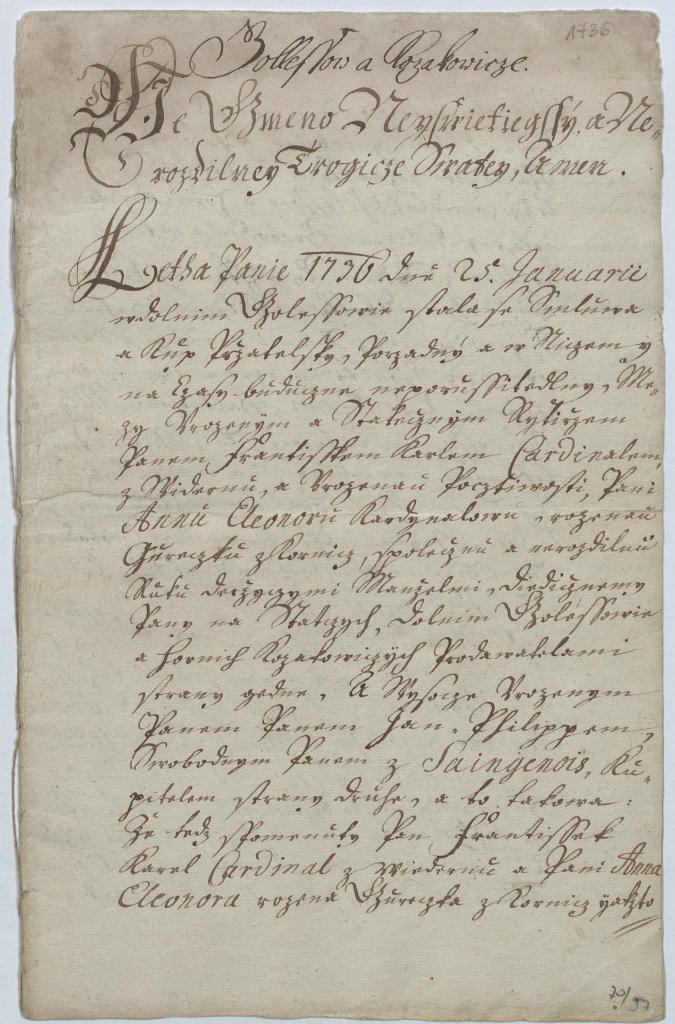 1736
Gollessow a Kozakowicze.
We Gmeno Neyswietiegssy, a Ne-
rozdilney Trogicze Swatey, Amen.
Letha Panie 1736 dne 25. Januarii
w dolnim Golessowie stala se Smluwa
a Kup Przatelsky, Porzadny a w Niczem y
na Czasy buduczne neporussitedlny, Me-
zy Urozenym a Statecznym Rytirzem
Panem Frantisskem Karlem Cardinalem
z Widernu, a Urozenau Pocztiwosti, Pani
Annu Eleonoru Kardynalowu, rozenau
Gureczku z Kornicz, spolecznu a nerozdilnu
Ruku derzyczymi Manzelmi, Diedicznemy
Pany na Statczych, Dolnim Golessowie
a Hornich Kozakowiczych Prodawatelami
strany gedne, A Wysocze Urozenym
Panem Panem Jan, Philippem,
Swobodnym Panem z Saingenois, Ku-
pitelem strany druhe, a to takowa:
Ze tedz spomenuty Pan Frantissek
Karel Cardinal z Wiedernu a Pani Anna
Eleonora rozena Gureczka z Kornicz yakzto
70/37